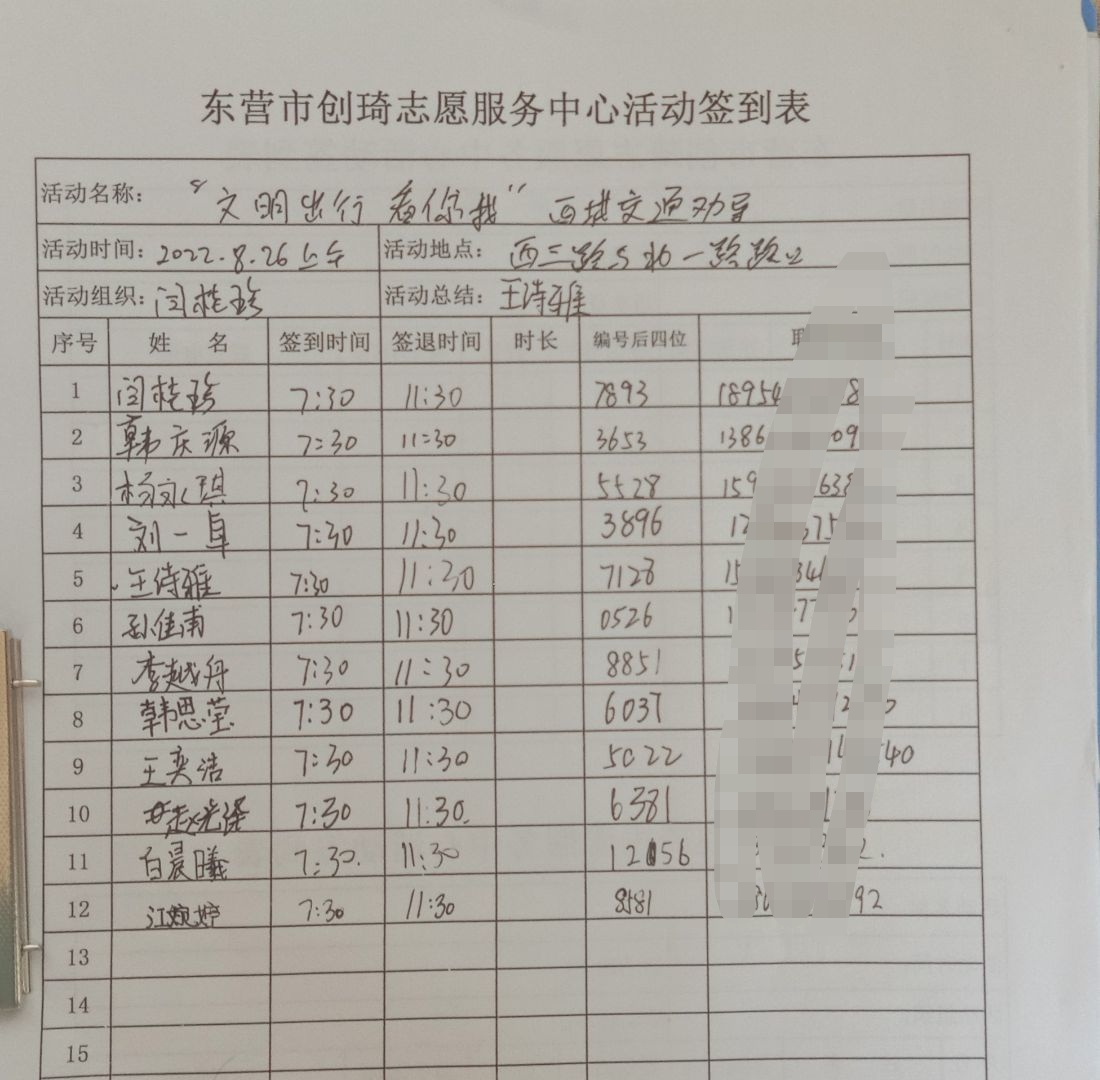 东营市创琦志愿服务中心活动签到表
活动名称： “文明出行 看你我” 西城交通劝导
活动时间：2022.8.26上午 活动地点： 西三路与北一路路口
活动组织：闫桂珍 活动总结：王诗雅
序号 姓 名 签到时间 签退时间 时长 编号后四位
1 闫桂珍 7:30 11:30 7893 18954
2 韩庆源 7:30 11:30 3653 1386 09
3 杨永琪 7:30 11:30 5528 159 638
4 刘一卓 7:30 11:30 3896
5 王诗雅 7:30 11:30 7128
6 孙佳甫 7:30 11:30 0526
7 李越丹 7:30 11:30 8851
8 韩思莹 7:30 11:30 6037
9 王奕洁 7:30 11:30 5022 40
10 7:30 11:30. 6381
11 白晨曦 7:30. 11:30
12 江婉婷 7:30 11:30 8581 92
13
14
15